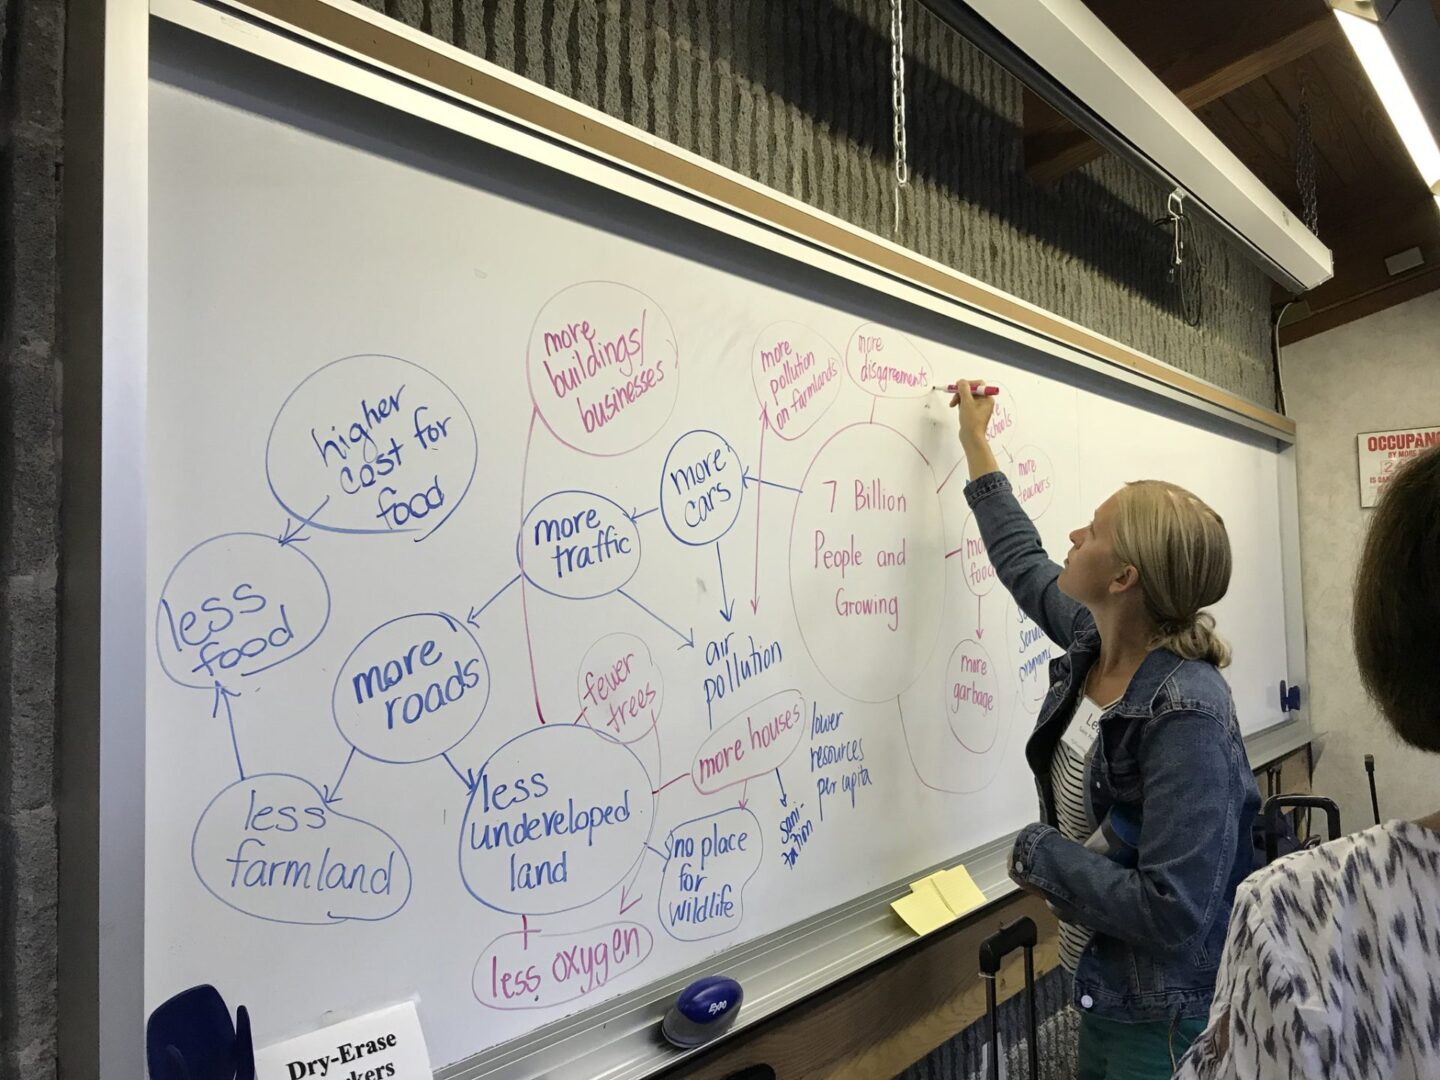 higher
cost for
food
less
food
less
farmland
more
roads
more
traffic
more
cars
more
buildings/
businesses
more
pollution
on farmlands
more
disagreements
7 Billion
People and
Growing
more
teachers
food
more
garbage
air
pollution
fewer
trees
more houses
lower
resources
per capita
sani-
tation
less
undeveloped
land
no place
for
wildlife
less oxygen
programs
Dry-Erase
EXPO
Le